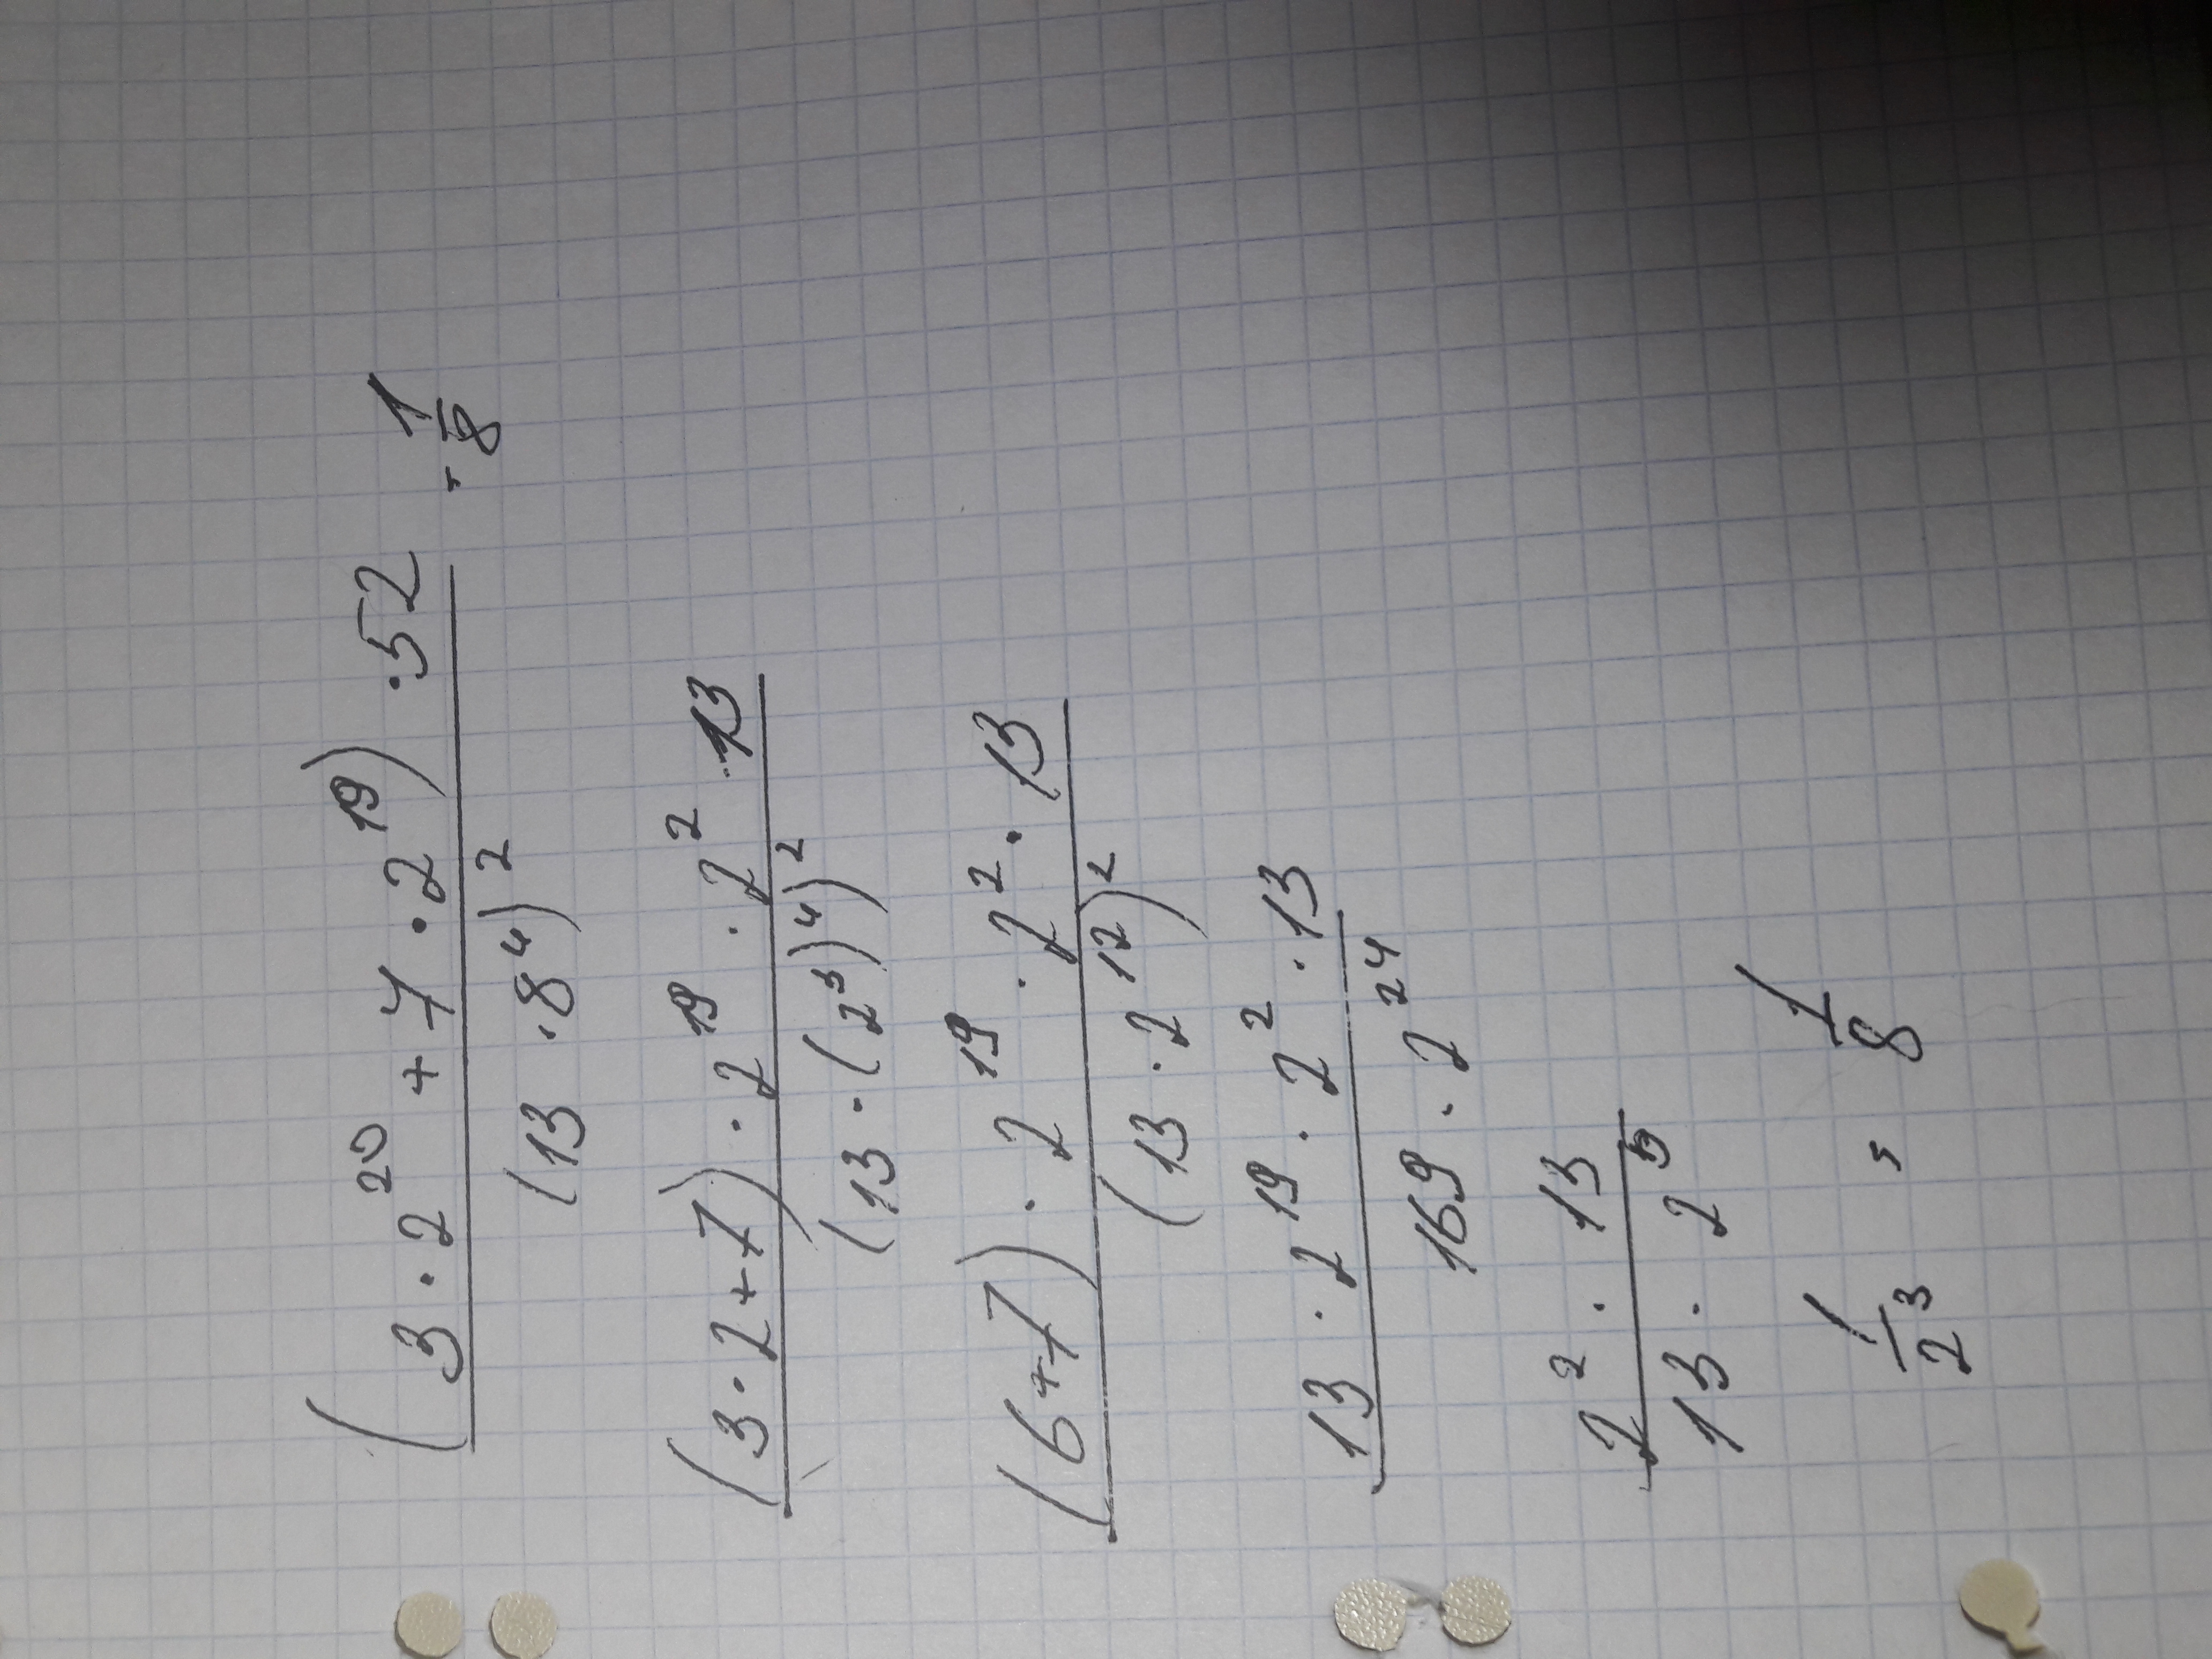 (3·2^20 + 7·2^19)·52 / (13·8^4)^2 - 1/8
(3·2+7)·2^19·2^2·13 / (13·(2^3)^4)^2
(6+7)·2^19·2^2·13 / (13·2^12)^2
13·2^19·2^2·13 / 169·2^24
2^2·13 / 13·2^5
1/2^3 , 1/8